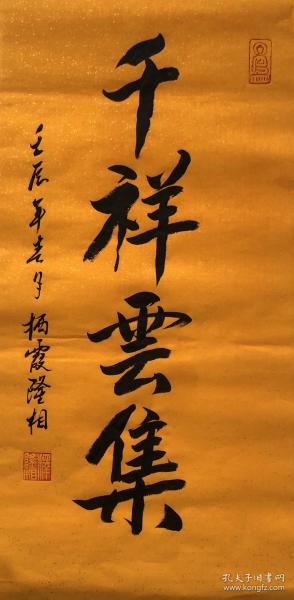 千祥雲集
壬辰年春月栖霞隆相
孔夫子旧书网
www.kongfz.com